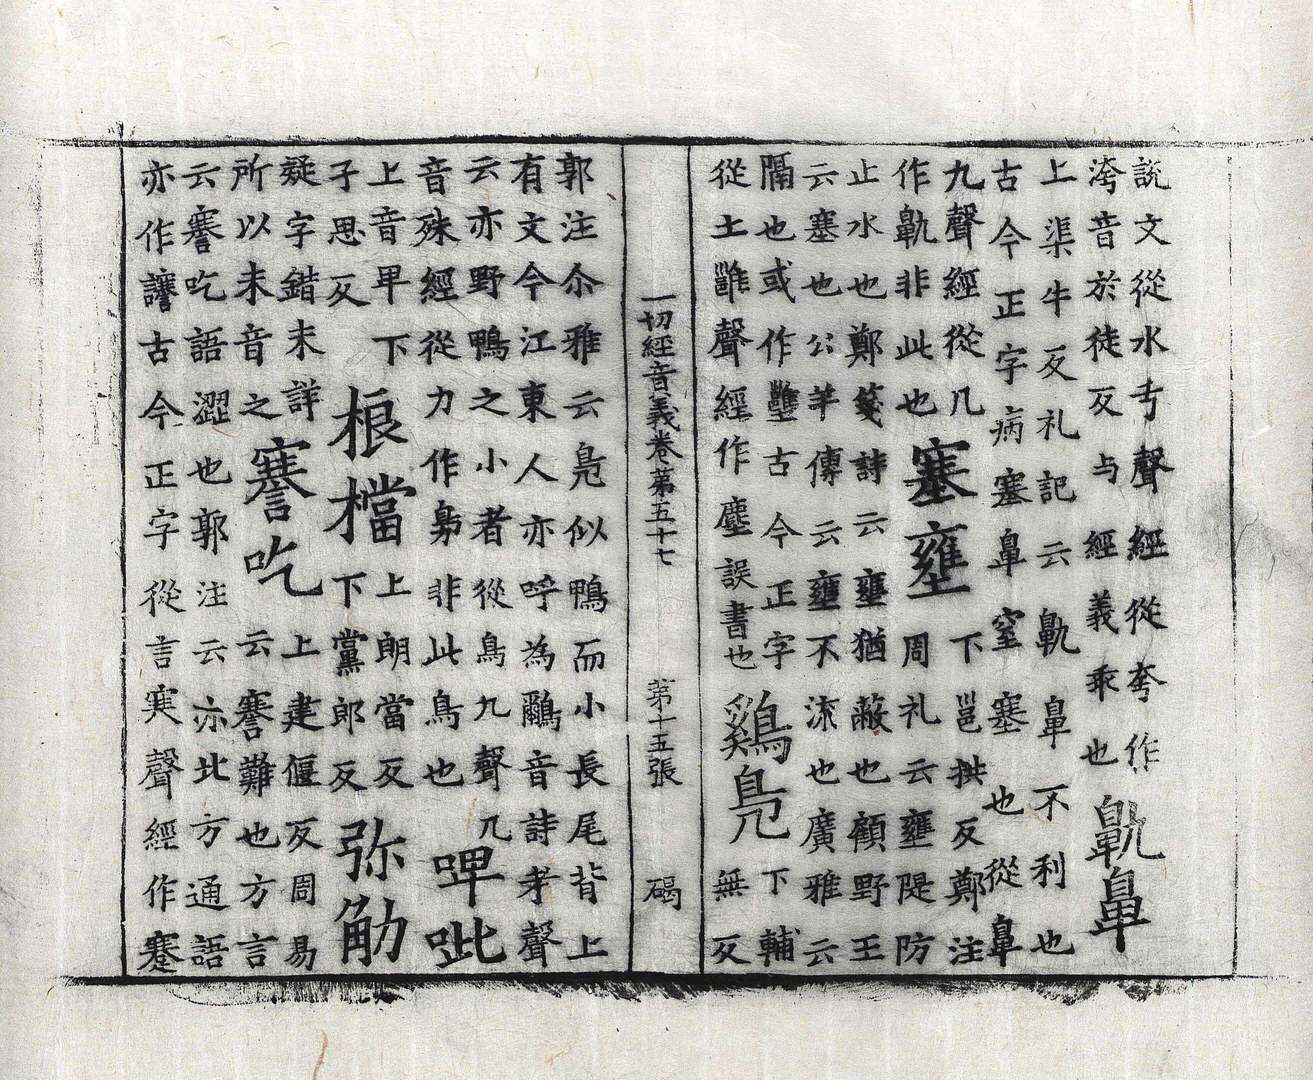 説文從水亐聲經從夸作
洿音於徒反与經義乖也
鼽鼻
上渠牛反礼記云鼽鼻不利也
古今正字病塞鼻窒塞也從鼻
九聲經從几
作鼽非此也
塞壅
下邕拱反鄭注
周礼云壅隄防
止水也鄭箋詩云壅猶蔽也顧野王
云塞也公羊傳云壅不流也廣雅云
隔也或作壅古今正字
從土雝聲經作塵誤書也
鷄鳬
下輔
無反
一切經音義卷第五十七 第十五張 碣
郭注尒雅云鳬似鴨而小長尾背上
有文今江東人亦呼為鸍音詩考聲
云亦野鴨之小者從鳥九聲几
音殊經從力作鳧非此鳥也
啤呲
上音卑下
子思反
桹檔
上朗當反
下黨郎反
弥勂
疑字錯未詳
所以未音之
謇吃
上建偃反周易
云謇難也方言
云謇吃語澀也郭注云亦北方通語
亦作讜古今正字從言寒聲經作蹇